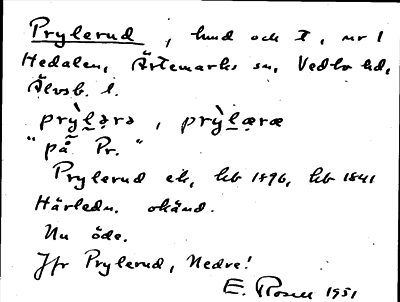 Prylerud, hmd och t, nr 1
Hedalen, Ärtemarks sn, Vedbo hd,
Älvsb. l.
prỳlərə, prỳlæræ
"på Pr."
Prylerud ek, kb 1896, kb 1841
Härledn. okänd.
Nu öde.
Jfr Prylerud, Nedre!
E. Rosell 1951